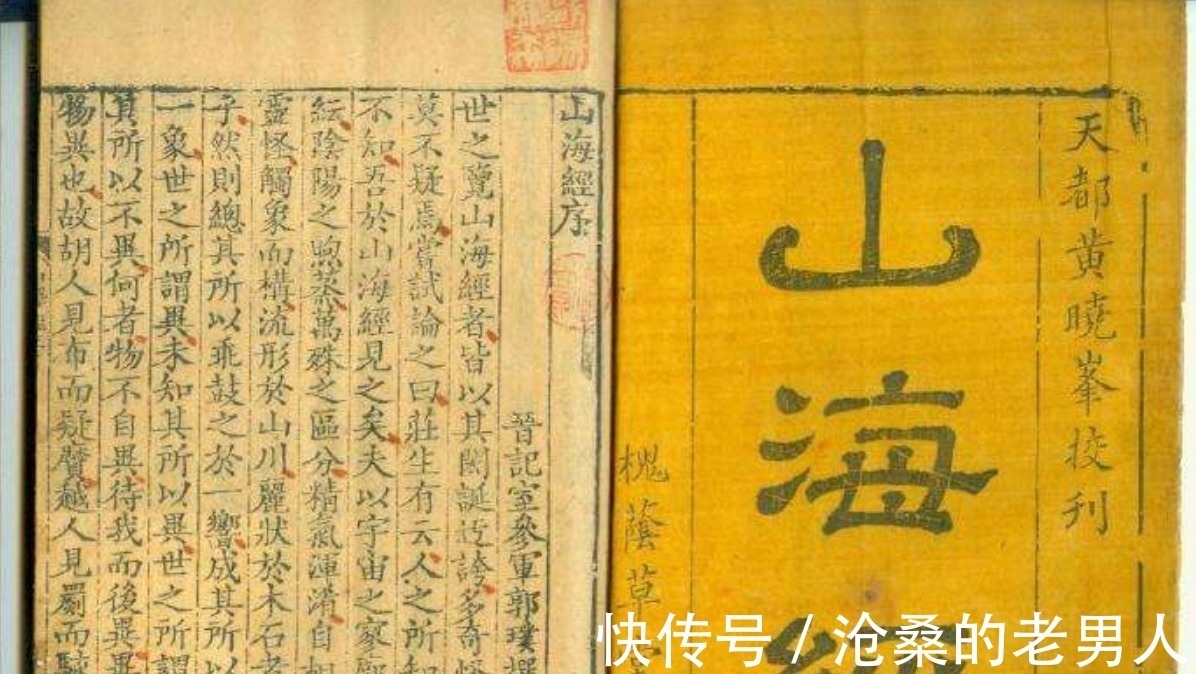 天都黄曉峯校刊
山海
槐蔭草
山海經序
晉記室參軍郭璞撰
世之覽山海經者皆以其閎誕迂誇多奇怪
莫不疑焉嘗試論之曰莊生有云人之所知
不知吾於山海經見之矣夫以宇宙之寥廓
紜陰陽之煦蒸萬殊之區分精氣渾淆自相
靈怪觸象而構流形於山川麗狀於木石者
子然則總其所以乖鼓之於一響成其所以
一象世之所謂異未知其所以異世之所謂
其所以不異何者物不自異待我而後異異
物異也故胡人見布而疑黂越人見罽而駭
快传号 / 沧桑的老男人